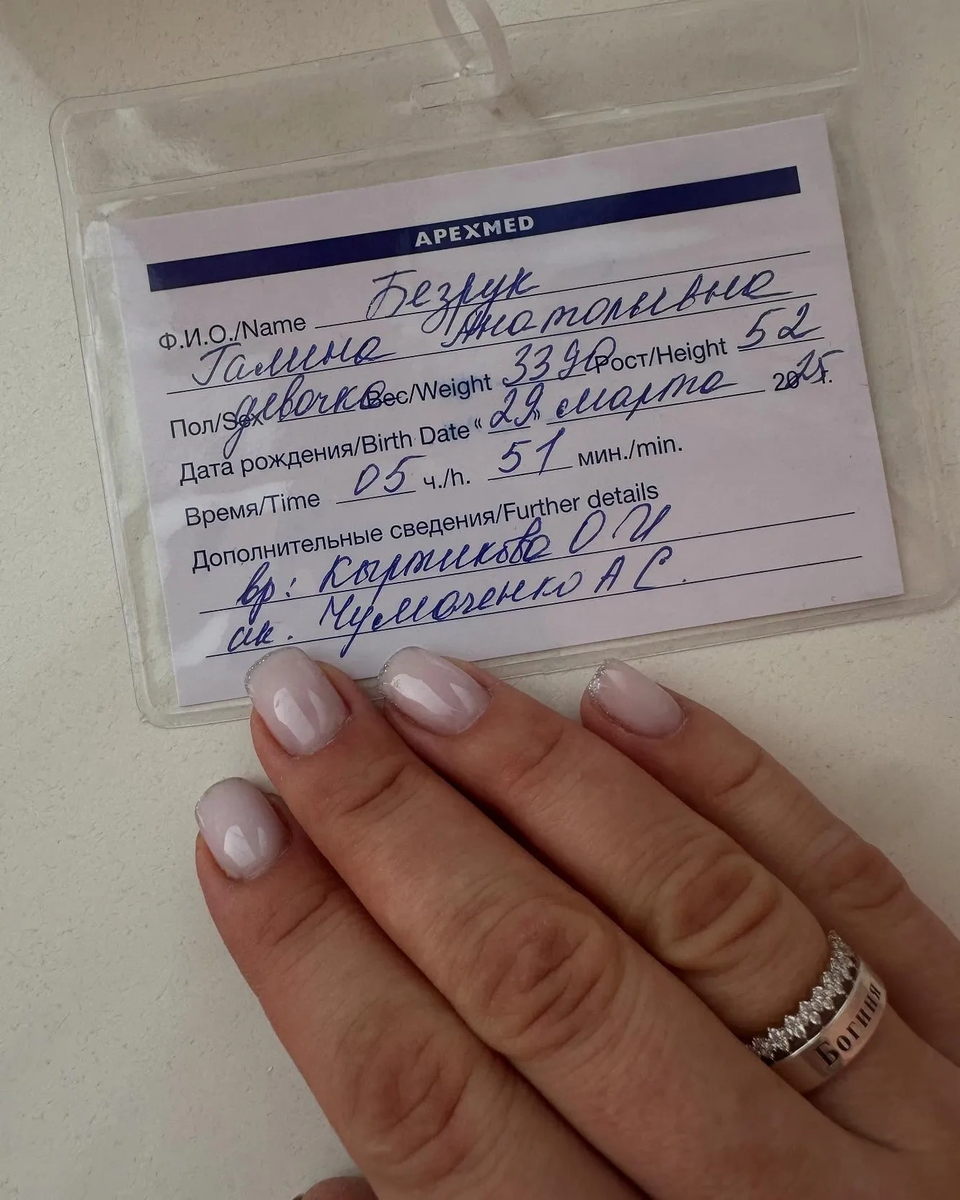 APEXMED
Ф.И.О./Name Безрук
Галина Анатольевна
Пол/Sex девочка Вес/Weight 3390 Рост/Height 52
Дата рождения/Birth Date "29" марта 2025г.
Время/Time 05 ч./h. 51 мин./min.
Дополнительные сведения/Further details
вр: О И
ак. Чумаченко А С.
Богиня